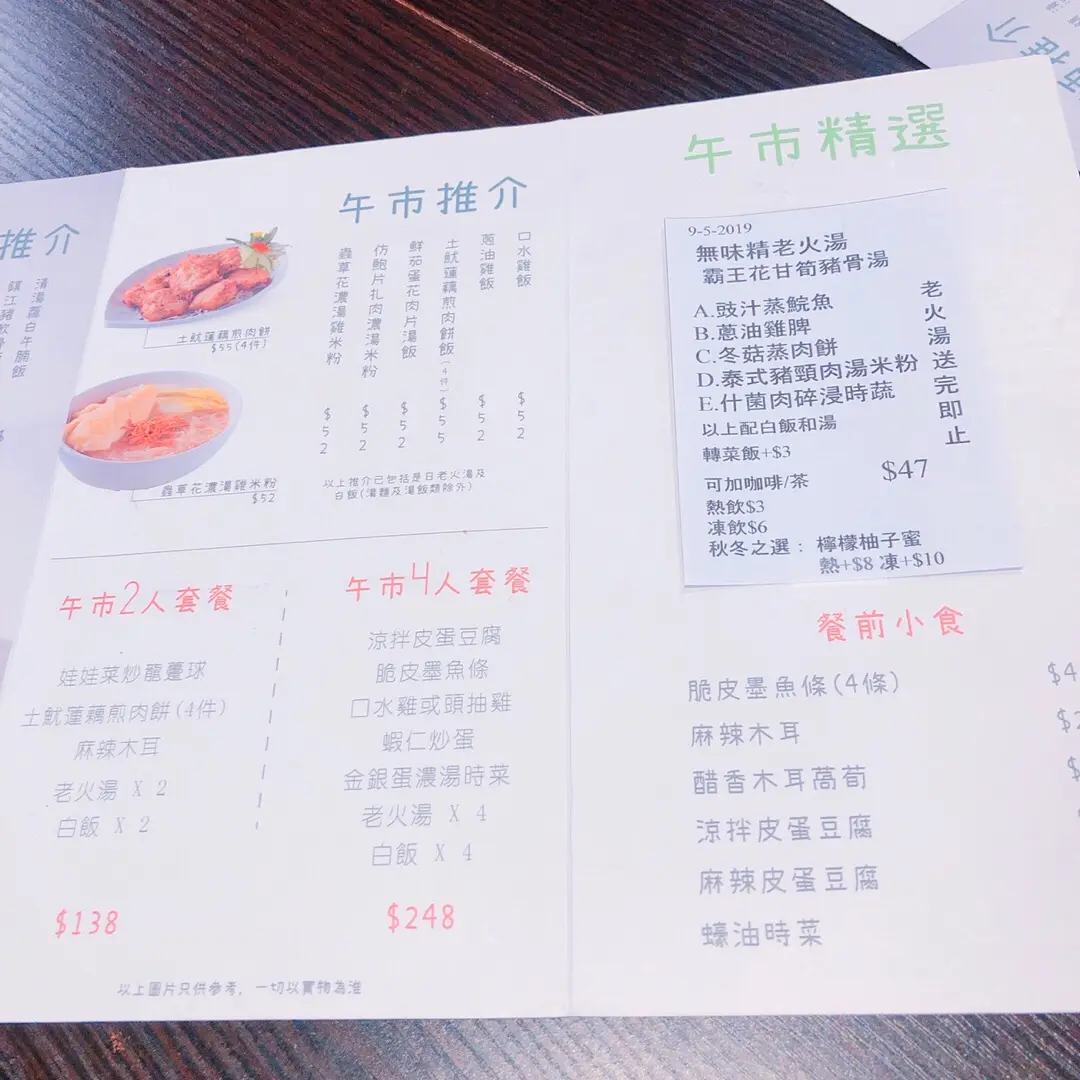 推介
清湯蘿白牛腩飯
午市推介
土魷蓮藕煎肉餅
$55(4件)
蟲草花濃湯雞米粉
$52
口水雞飯 $52
蔥油雞飯 $52
土魷蓮藕煎肉餅飯(4件) $55
鮮茄蛋花肉片湯飯 $52
仿鮑片扎肉濃湯米粉 $52
蟲草花濃湯雞米粉 $52
以上推介已包括是日老火湯及
白飯(湯麵及湯飯類除外)
午市2人套餐
娃娃菜炒龍躉球
土魷蓮藕煎肉餅(4件)
麻辣木耳
老火湯 X 2
白飯 X 2
$138
午市4人套餐
涼拌皮蛋豆腐
脆皮墨魚條
口水雞或頭抽雞
蝦仁炒蛋
金銀蛋濃湯時菜
老火湯 X 4
白飯 X 4
$248
以上圖片只供參考，一切以實物為準
午市精選
9-5-2019
無味精老火湯
霸王花甘筍豬骨湯
A.豉汁蒸鯇魚
B.蔥油雞脾
C.冬菇蒸肉餅
D.泰式豬頸肉湯米粉
E.什菌肉碎浸時蔬
老火湯送完即止
以上配白飯和湯
轉菜飯+$3
$47
可加咖啡/茶
熱飲$3
凍飲$6
秋冬之選：檸檬柚子蜜
熱+$8 凍+$10
餐前小食
脆皮墨魚條(4條)
麻辣木耳
醋香木耳萵荀
涼拌皮蛋豆腐
麻辣皮蛋豆腐
蠔油時菜